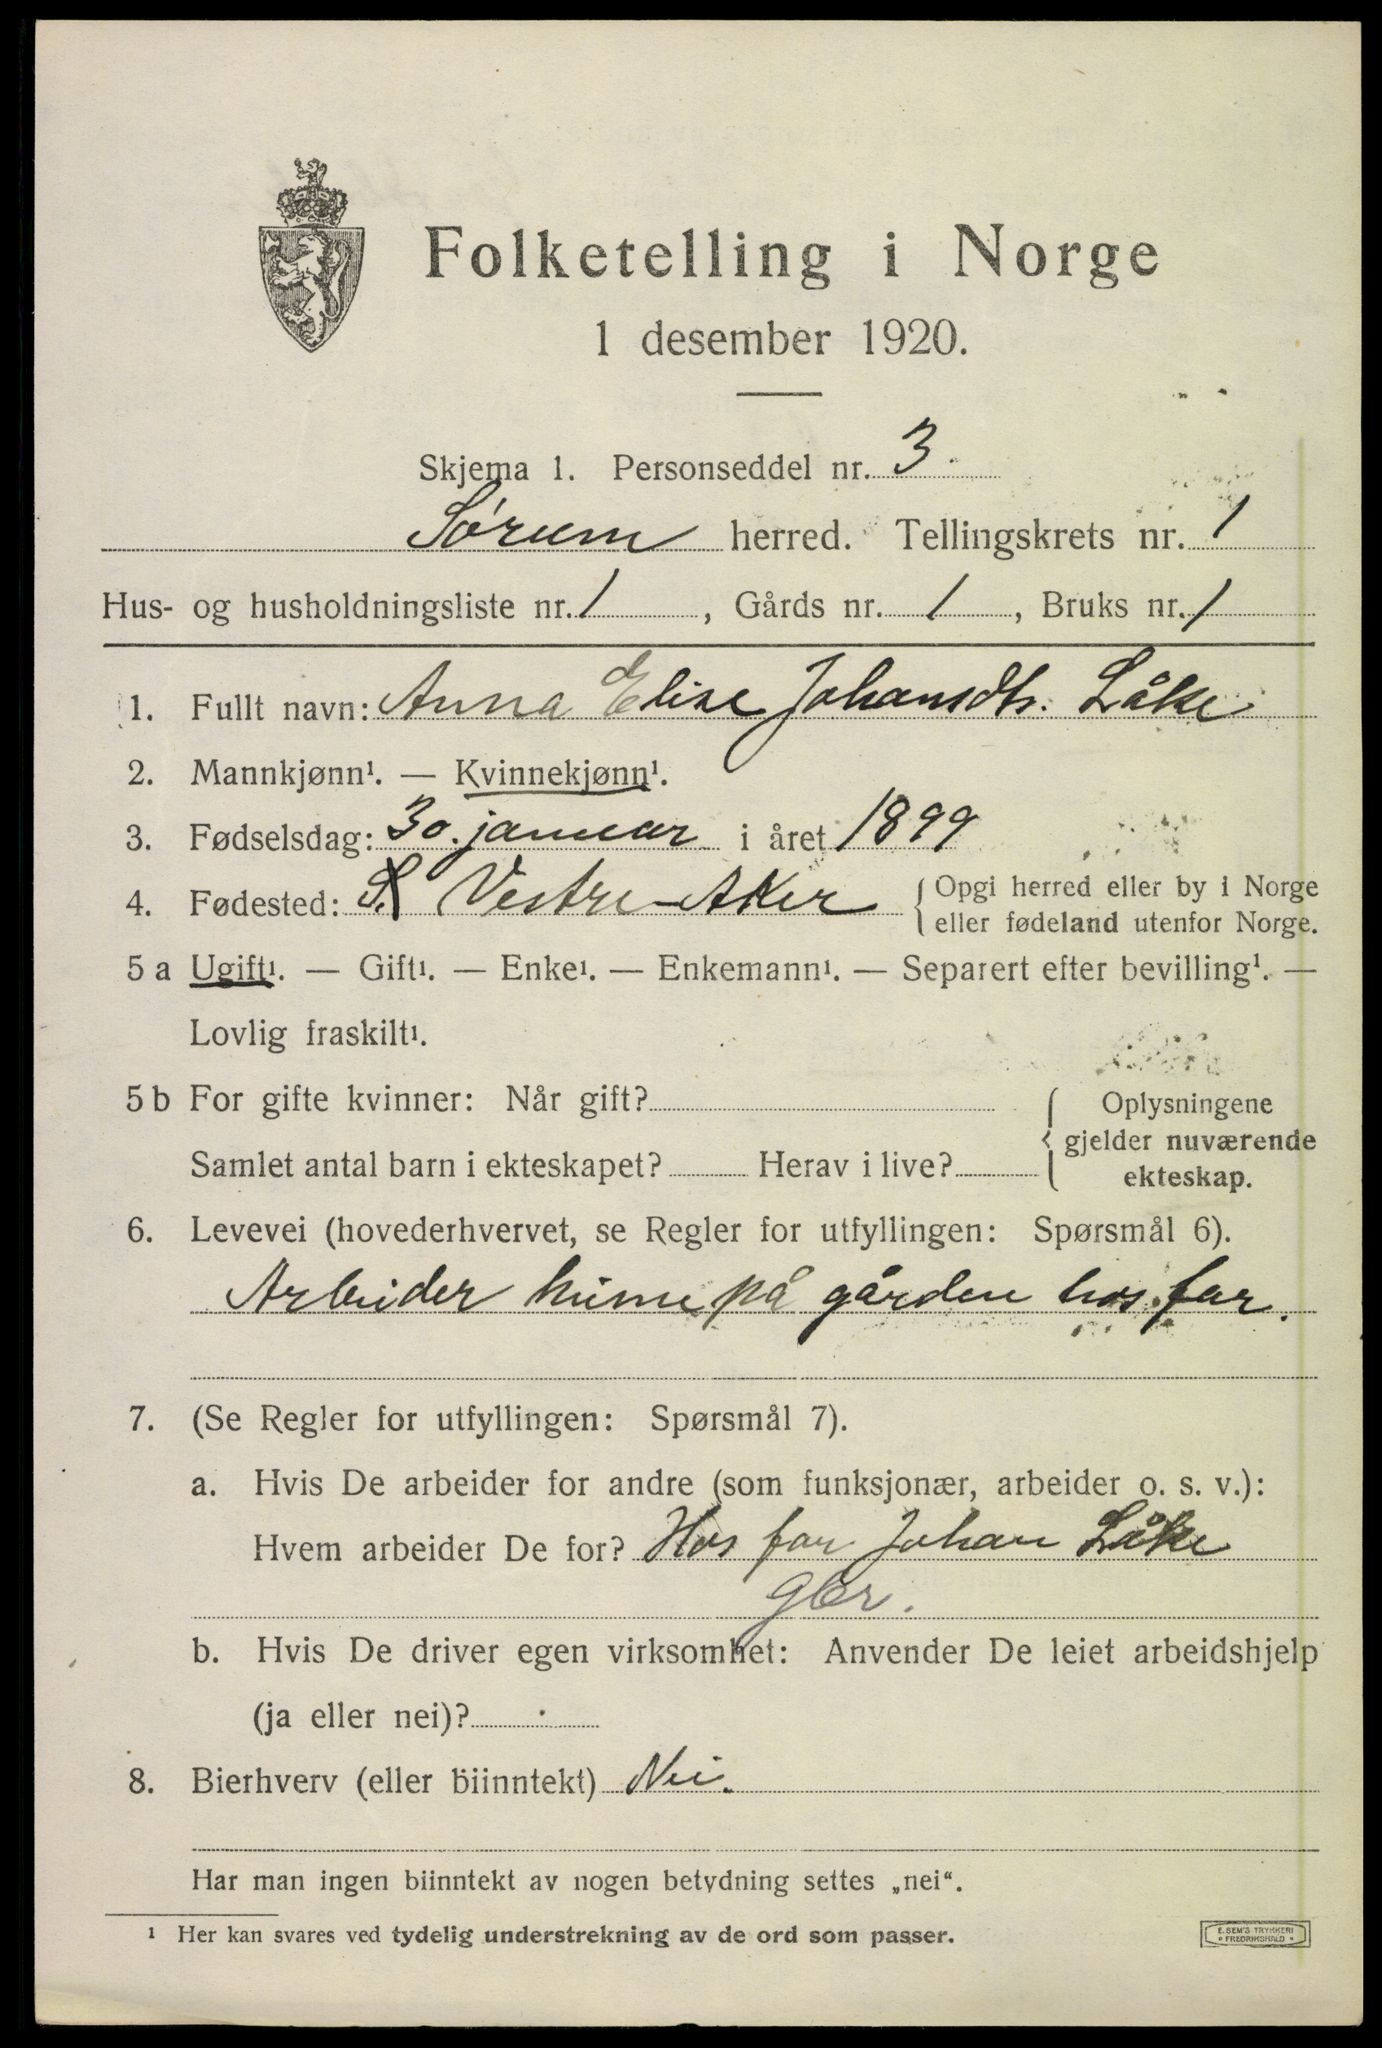 Folketelling i Norge
1 desember 1920.
Skjema 1. Personseddel nr. 3.
Sørum herred. Tellingskrets nr. 1
Hus- og husholdningsliste nr. 1, Gårds nr. 1, Bruks nr. 1
1. Fullt navn: Anna Elise Johansdtr. Låke
2. Mannkjønn¹. — Kvinnekjønn¹.
3. Fødselsdag: 30. januar i året 1899
4. Fødested: Vestre Aker { Opgi herred eller by i Norge
eller fødeland utenfor Norge.
5 a Ugift¹. — Gift¹. — Enke¹. — Enkemann¹. — Separert efter bevilling¹. —
Lovlig fraskilt¹.
5 b For gifte kvinner: Når gift? { Oplysningene
gjelder nuværende
Samlet antal barn i ekteskapet? Herav i live? ekteskap.
6. Levevei (hovederhvervet, se Regler for utfyllingen: Spørsmål 6).
Arbeider hime på gården hos far.
7. (Se Regler for utfyllingen: Spørsmål 7).
a. Hvis De arbeider for andre (som funksjonær, arbeider o. s. v.):
Hvem arbeider De for? Hos far Johan Låke
Gbr.
b. Hvis De driver egen virksomhet: Anvender De leiet arbeidshjelp
(ja eller nei)?
8. Bierhverv (eller biinntekt) Nei.
Har man ingen biinntekt av nogen betydning settes „nei“.
¹ Her kan svares ved tydelig understrekning av de ord som passer.
E. SEM'S TRYKKERI
• FREDRIKSHALD •